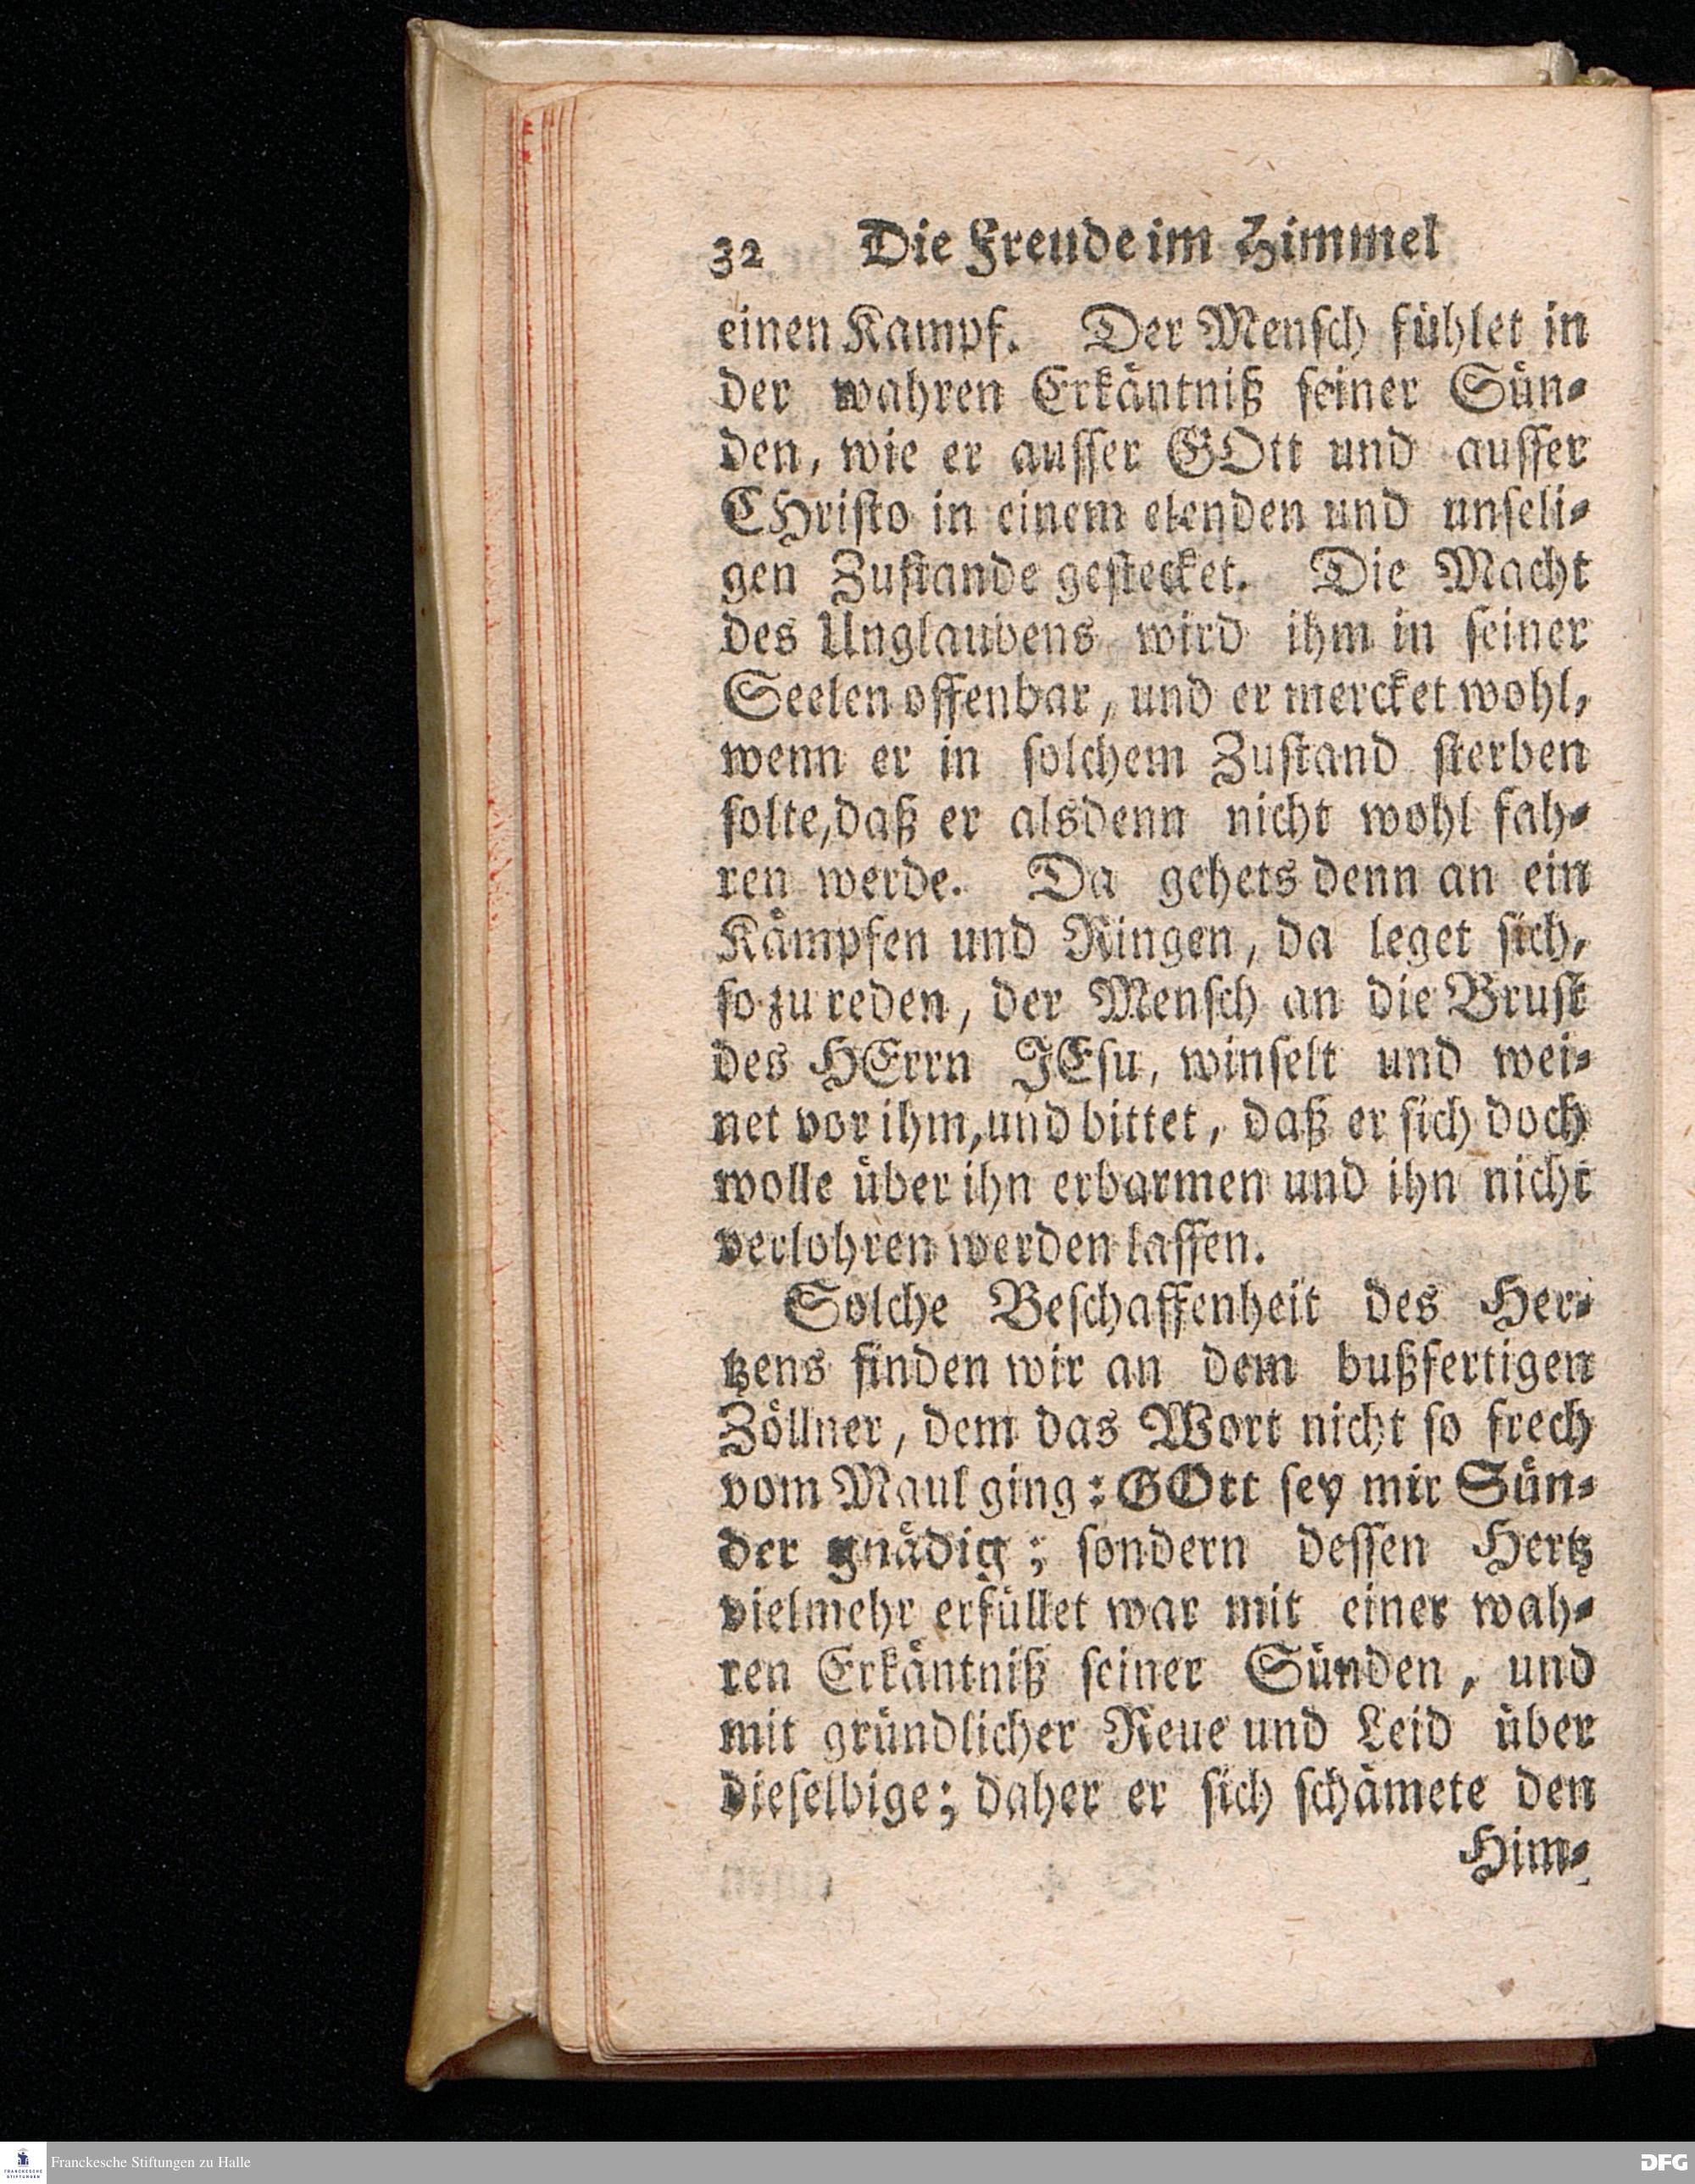 32 Die Freude im Himmel
einen Kampf. Der Mensch fühlet in
der wahren Erkäntniß seiner Sün-
den, wie er ausser GOtt und ausser
CHristo in einem elenden und unseli-
gen Zustande gestecket. Die Macht
des Unglaubens wird ihm in seiner
Seelen offenbar, und er mercket wohl,
wenn er in solchem Zustand sterben
solte, daß er alsdenn nicht wohl fah-
ren werde. Da gehets denn an ein
Kämpfen und Ringen, da leget sich,
so zu reden, der Mensch an die Brust
des HErrn JEsu, winselt und wei-
net vor ihm, und bittet, daß er sich doch
wolle über ihn erbarmen und ihn nicht
verlohren werden lassen.
Solche Beschaffenheit des Her-
tzens finden wir an dem bußfertigen
Zöllner, dem das Wort nicht so frech
vom Maul ging: GOtt sey mir Sün-
der gnädig; sondern dessen Hertz
vielmehr erfüllet war mit einer wah-
ren Erkäntniß seiner Sünden, und
mit gründlicher Reue und Leid über
dieselbige; daher er sich schämete den
Him-
FRANCKESCHE
STIFTUNGEN
Franckesche Stiftungen zu Halle
DFG